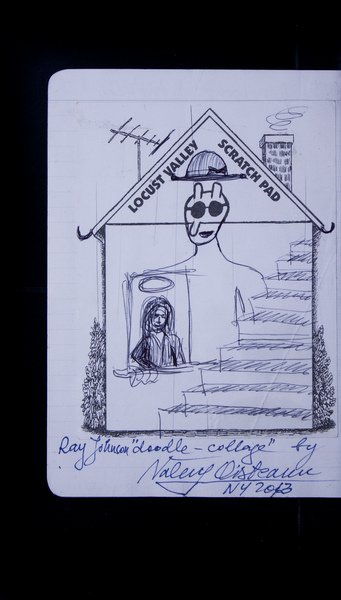 LOCUST VALLEY SCRATCH PAD
Ray Johnson "doodle-collage" by
Valery Oisteanu
NY 2013